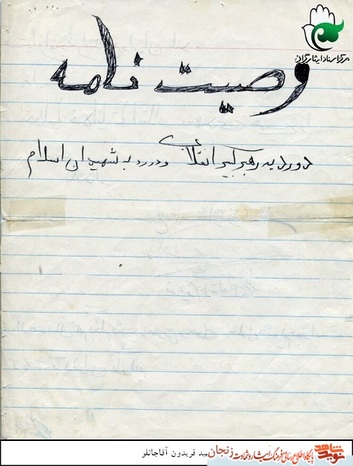 مرکز اسناد ایثارگران
وصیت نامه
درود به رهبر کبیر انقلابی و درود به شهیدان اسلام
نوید شاهد
پایگاه اطلاع رسانی فرهنگ ایثار و شهادت زنجان
سید فریدون آقاجانلو